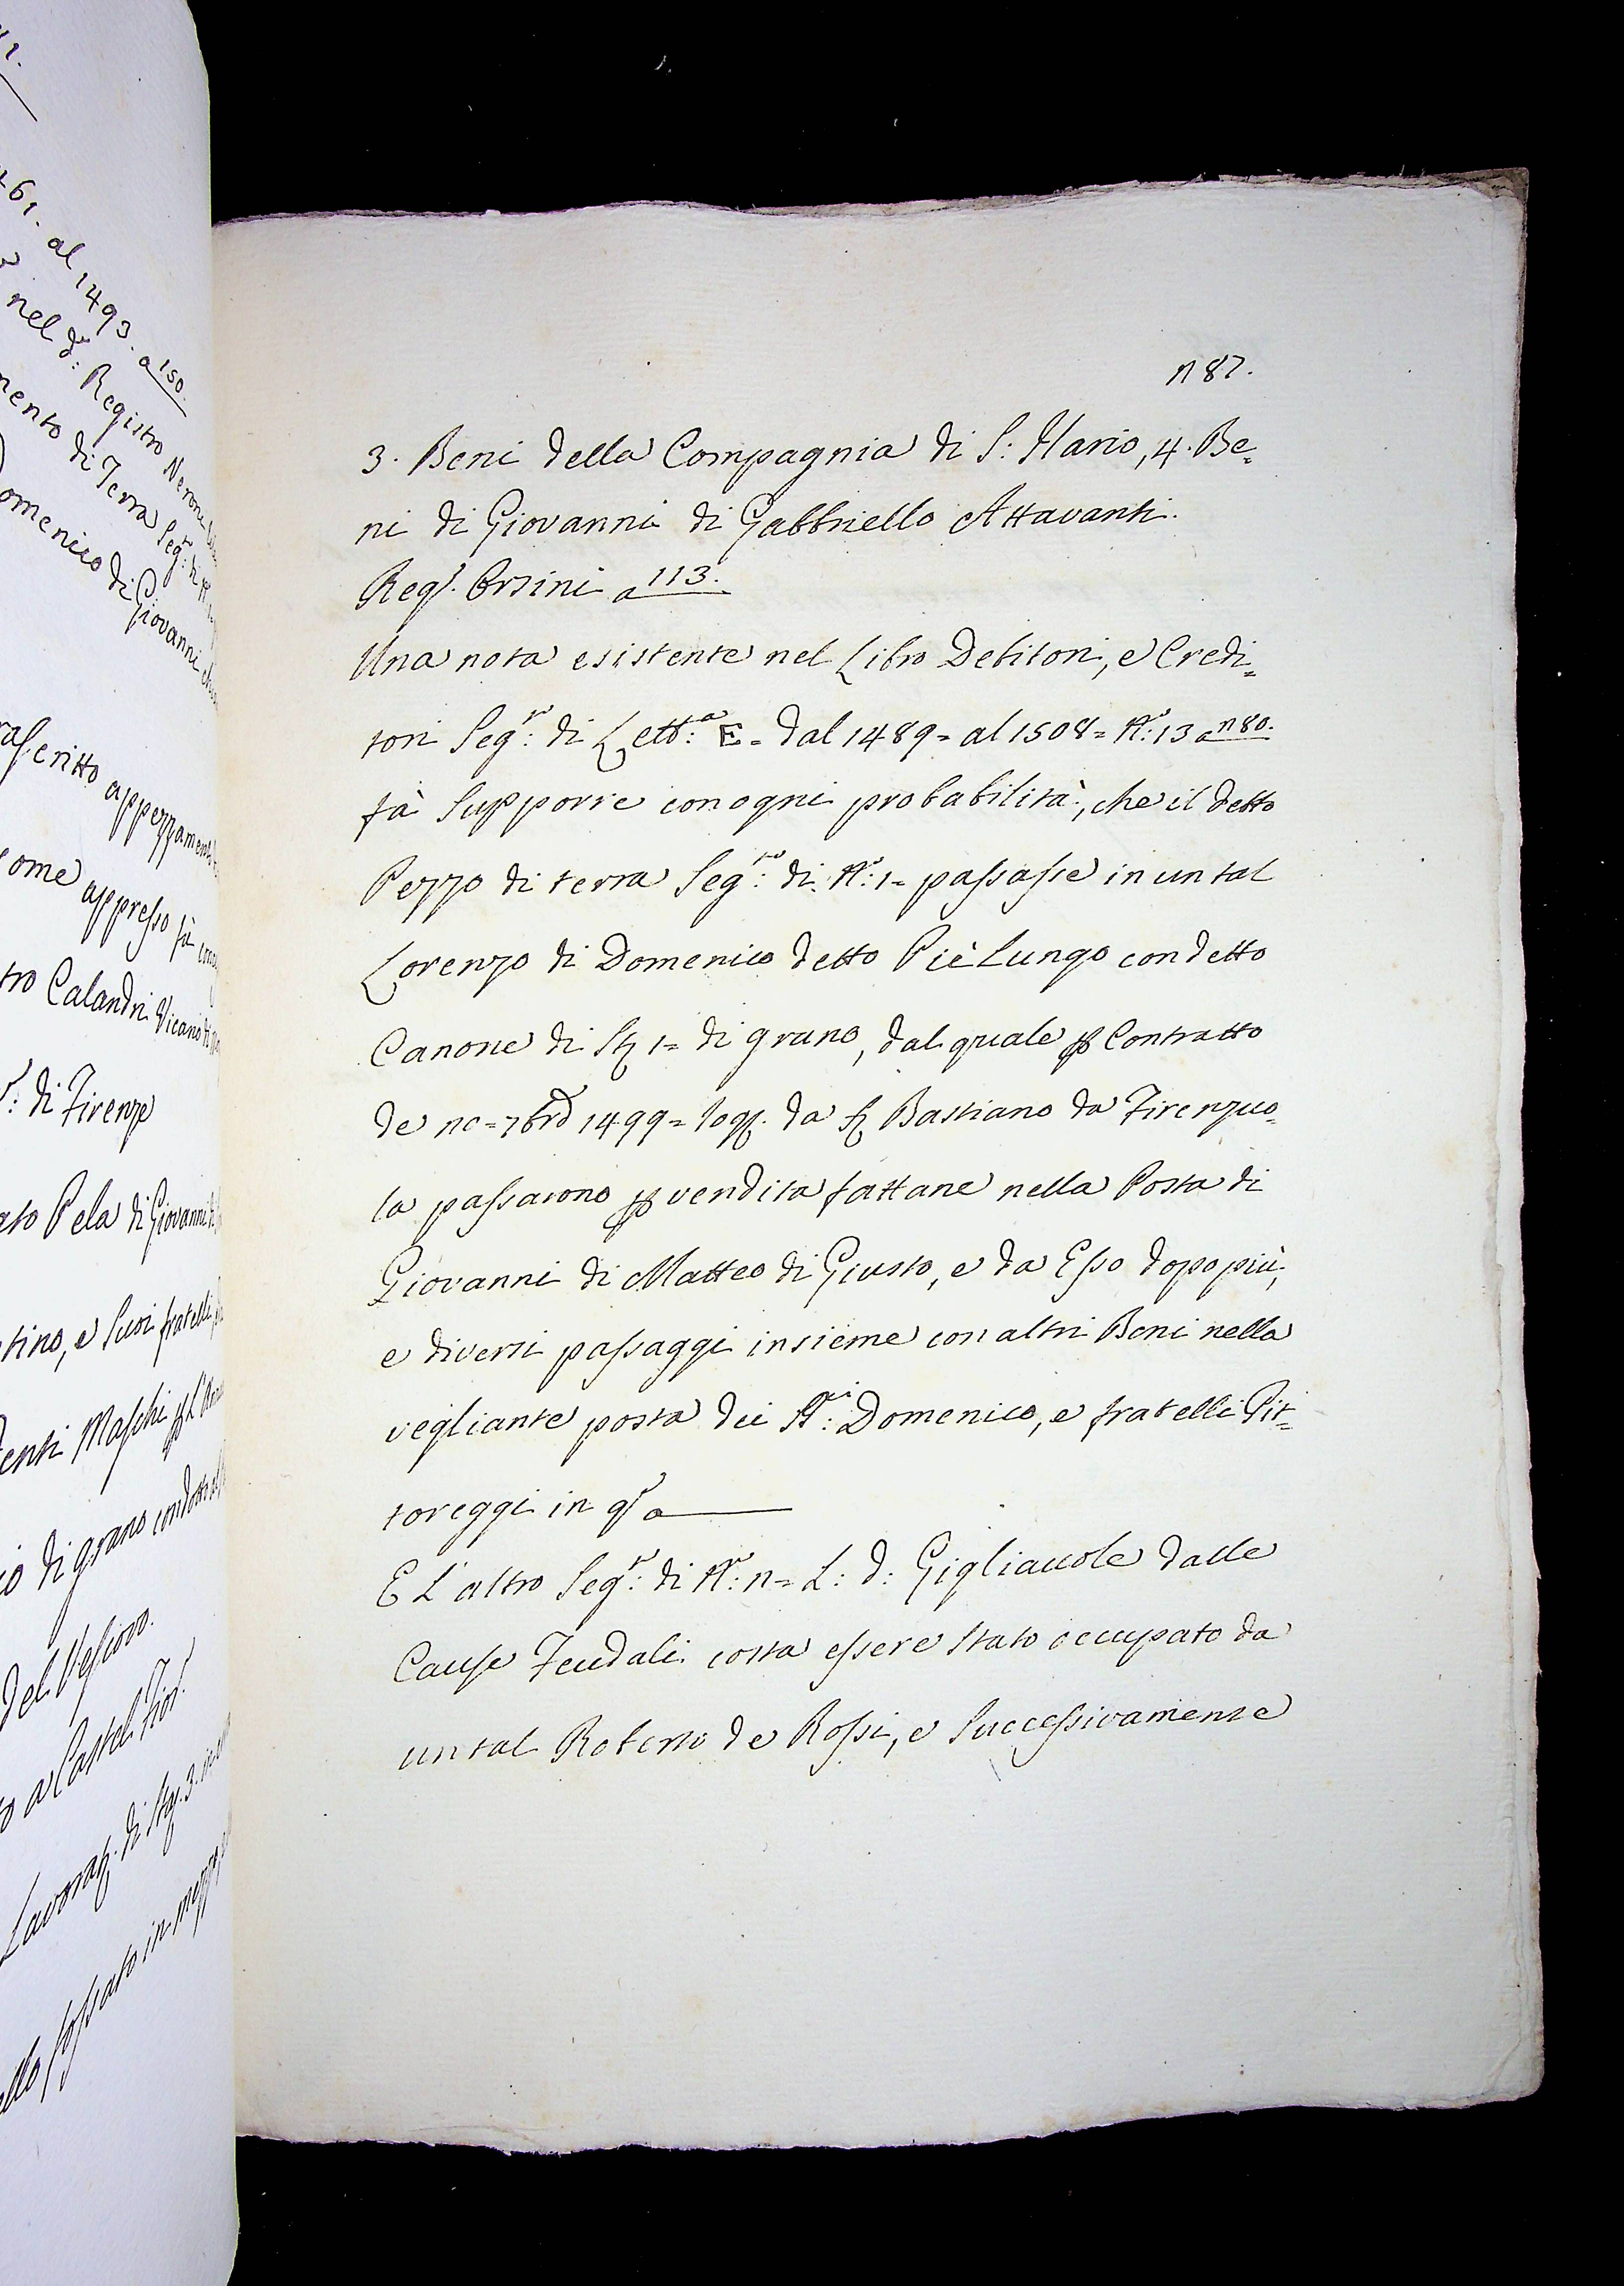 461. al 1493. a 150.
nel d.: Registro Neroni
mento di Terra Seg.:
omenico di Giovanni
critto appezzamento
ome appresso fà
tro Calandri Vicario
: di Firenze
ato Pela di Giovanni
tino, e Suoi fratelli
enti Maschi
io di grano condotto
del Vescovo.
o a Castel Fior.
Lavorat. di Sta. 3.
ello fossato in mezzo
n 87.
3. Beni della Compagnia di S: Ilario, 4. Be=
ni di Giovanni di Gabbriello Attavanti.
Reg.º Orsini a 113.
Una nota esistente nel Libro Debitori, e Credi=
tori Seg:to di Lett:a E= dal 1489= al 1508= N:o 13 a n80.
fà Supporre con ogni probabilità, che il detto
Pezzo di terra Seg:to di N:o 1= passasse in un tal
Lorenzo di Domenico detto Piè Lungo con detto
Canone di St 1= di grano, dal quale p Contratto
de nc= 7bre 1499= rog. da S Bastiano da Firenzuo=
la passarono p vendita fattane nella Posta di
Giovanni di Matteo di Giusto, e da Esso dopo più,
e diversi passaggi insieme con altri Beni nella
vegliante posta dei N:ri Domenico, e fratelli Pit=
toreggi in qº a
E L'altro Seg:to di N:o n= L: d: Gigliauole dalle
Cause Feudali costa essere stato occupato da
un tal Roberto de Rossi, e Successivamente